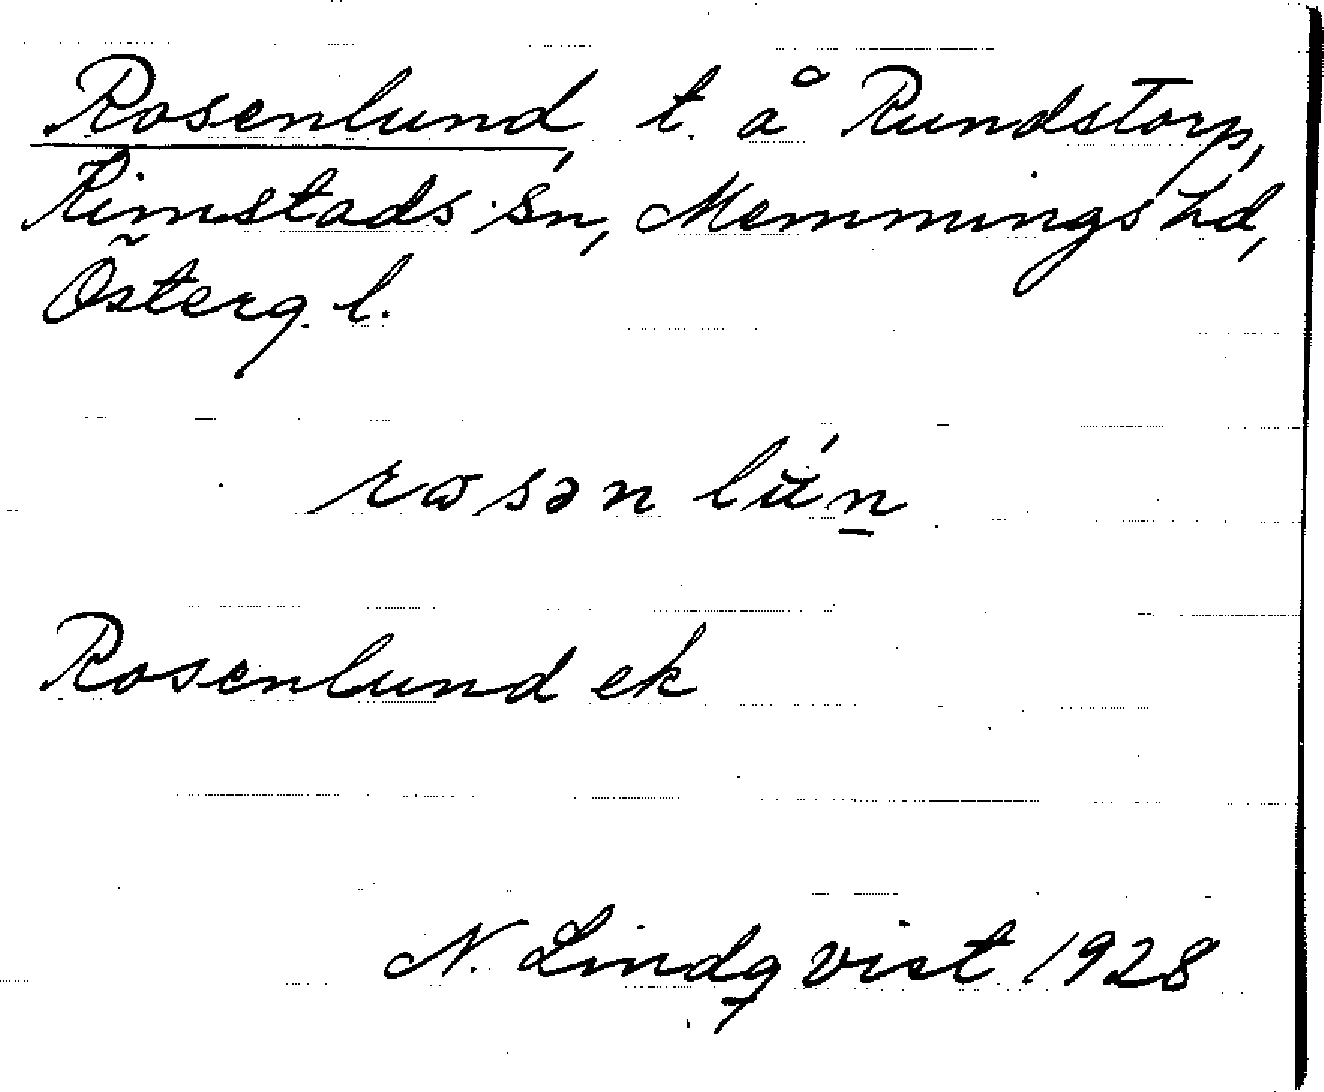 Rosenlund, t. å Rundstorp,
Rimstads sn, Memmings hd,
Österg. l.
rɷsən lŭ́n̲
Rosenlund ek
N. Lindqvist 1928